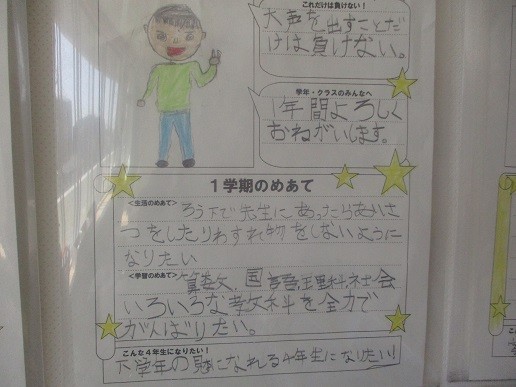 これだけは負けない!
大声を出すことだ
けは負けない。
学年・クラスのみんなへ
1年間よろしく
おねがいします。
1学期のめあて
<生活のめあて> ろう下で先生にあったらあいさ
つをしたりわすれ物をしないように
なりたい
<学習のめあて> 算数、国語、理科、社会
いろいろな教科を全力で
がんばりたい。
こんな4年生になりたい!
大学年の になれる4年生になりたい!